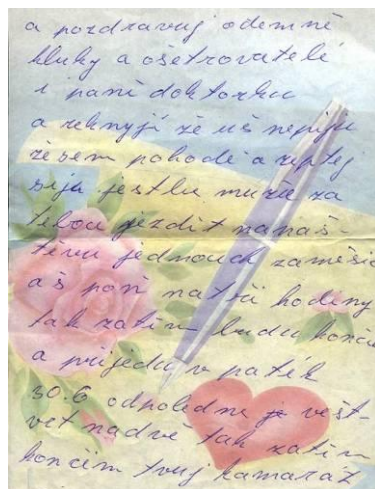 a pozdravuj odemně
kluky a ošetrovatelé
i paní doktorku
a reknyjí že uš nepiju
že sem pohodě a zeptej
se jestli mužu za
tebou jezdit nanáš-
těvu jednouch zaměsíc
aš poň natři hodiny
tak zatim budu končit
a prijedu v paték
30.6 odpoledne je ve čt-
vrt nadvě tak zatim
končim tvuj kamarád